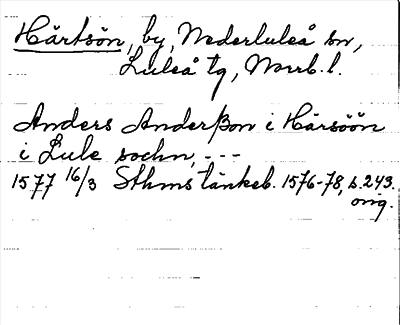 Härtsön, by, Nederluleå sn,
Luleå tg, Norrb. l.
Anders Anderßon i Härsöön
i Lule sochn, ---
1577 16/3 Sthms tänkeb. 1576-78, s. 243.
orig.